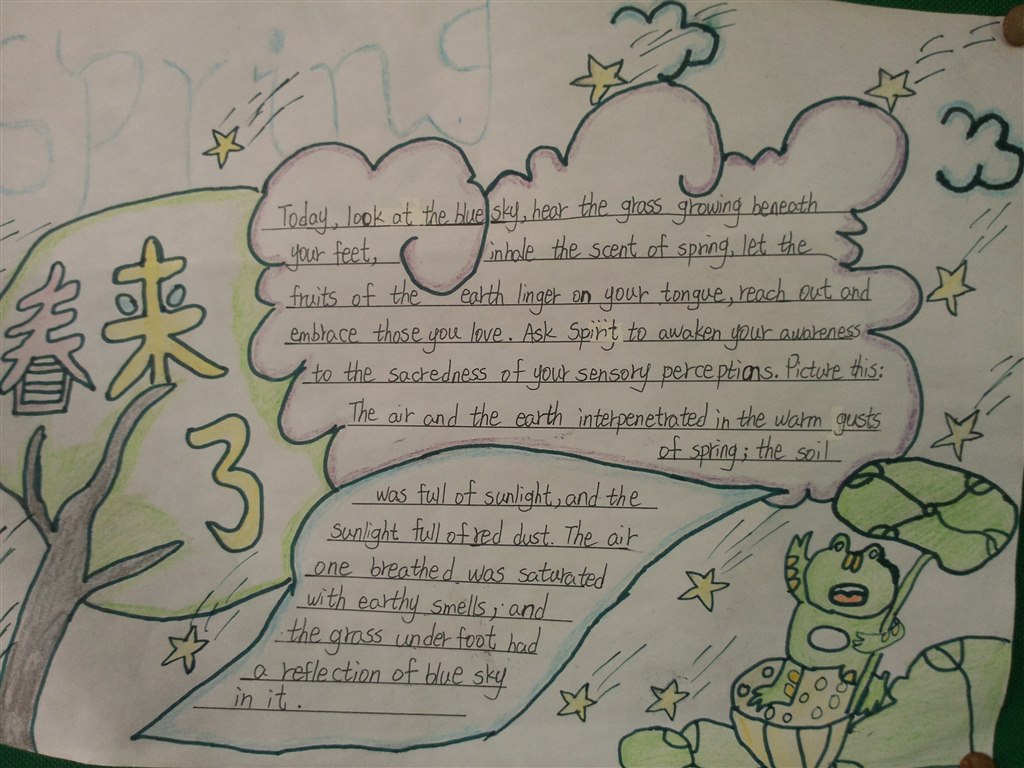 Spring
春来
了
Today, look at the blue sky, hear the grass growing beneath
your feet, inhale the scent of spring, let the
fruits of the earth linger on your tongue, reach out and
embrace those you love. Ask Spirit to awaken your awareness
to the sacredness of your sensory perceptions. Picture this:
The air and the earth interpenetrated in the warm gusts
of spring; the soil
was full of sunlight, and the
sunlight full of red dust. The air
one breathed was saturated
with earthy smells, and
the grass under foot had
a reflection of blue sky
in it.